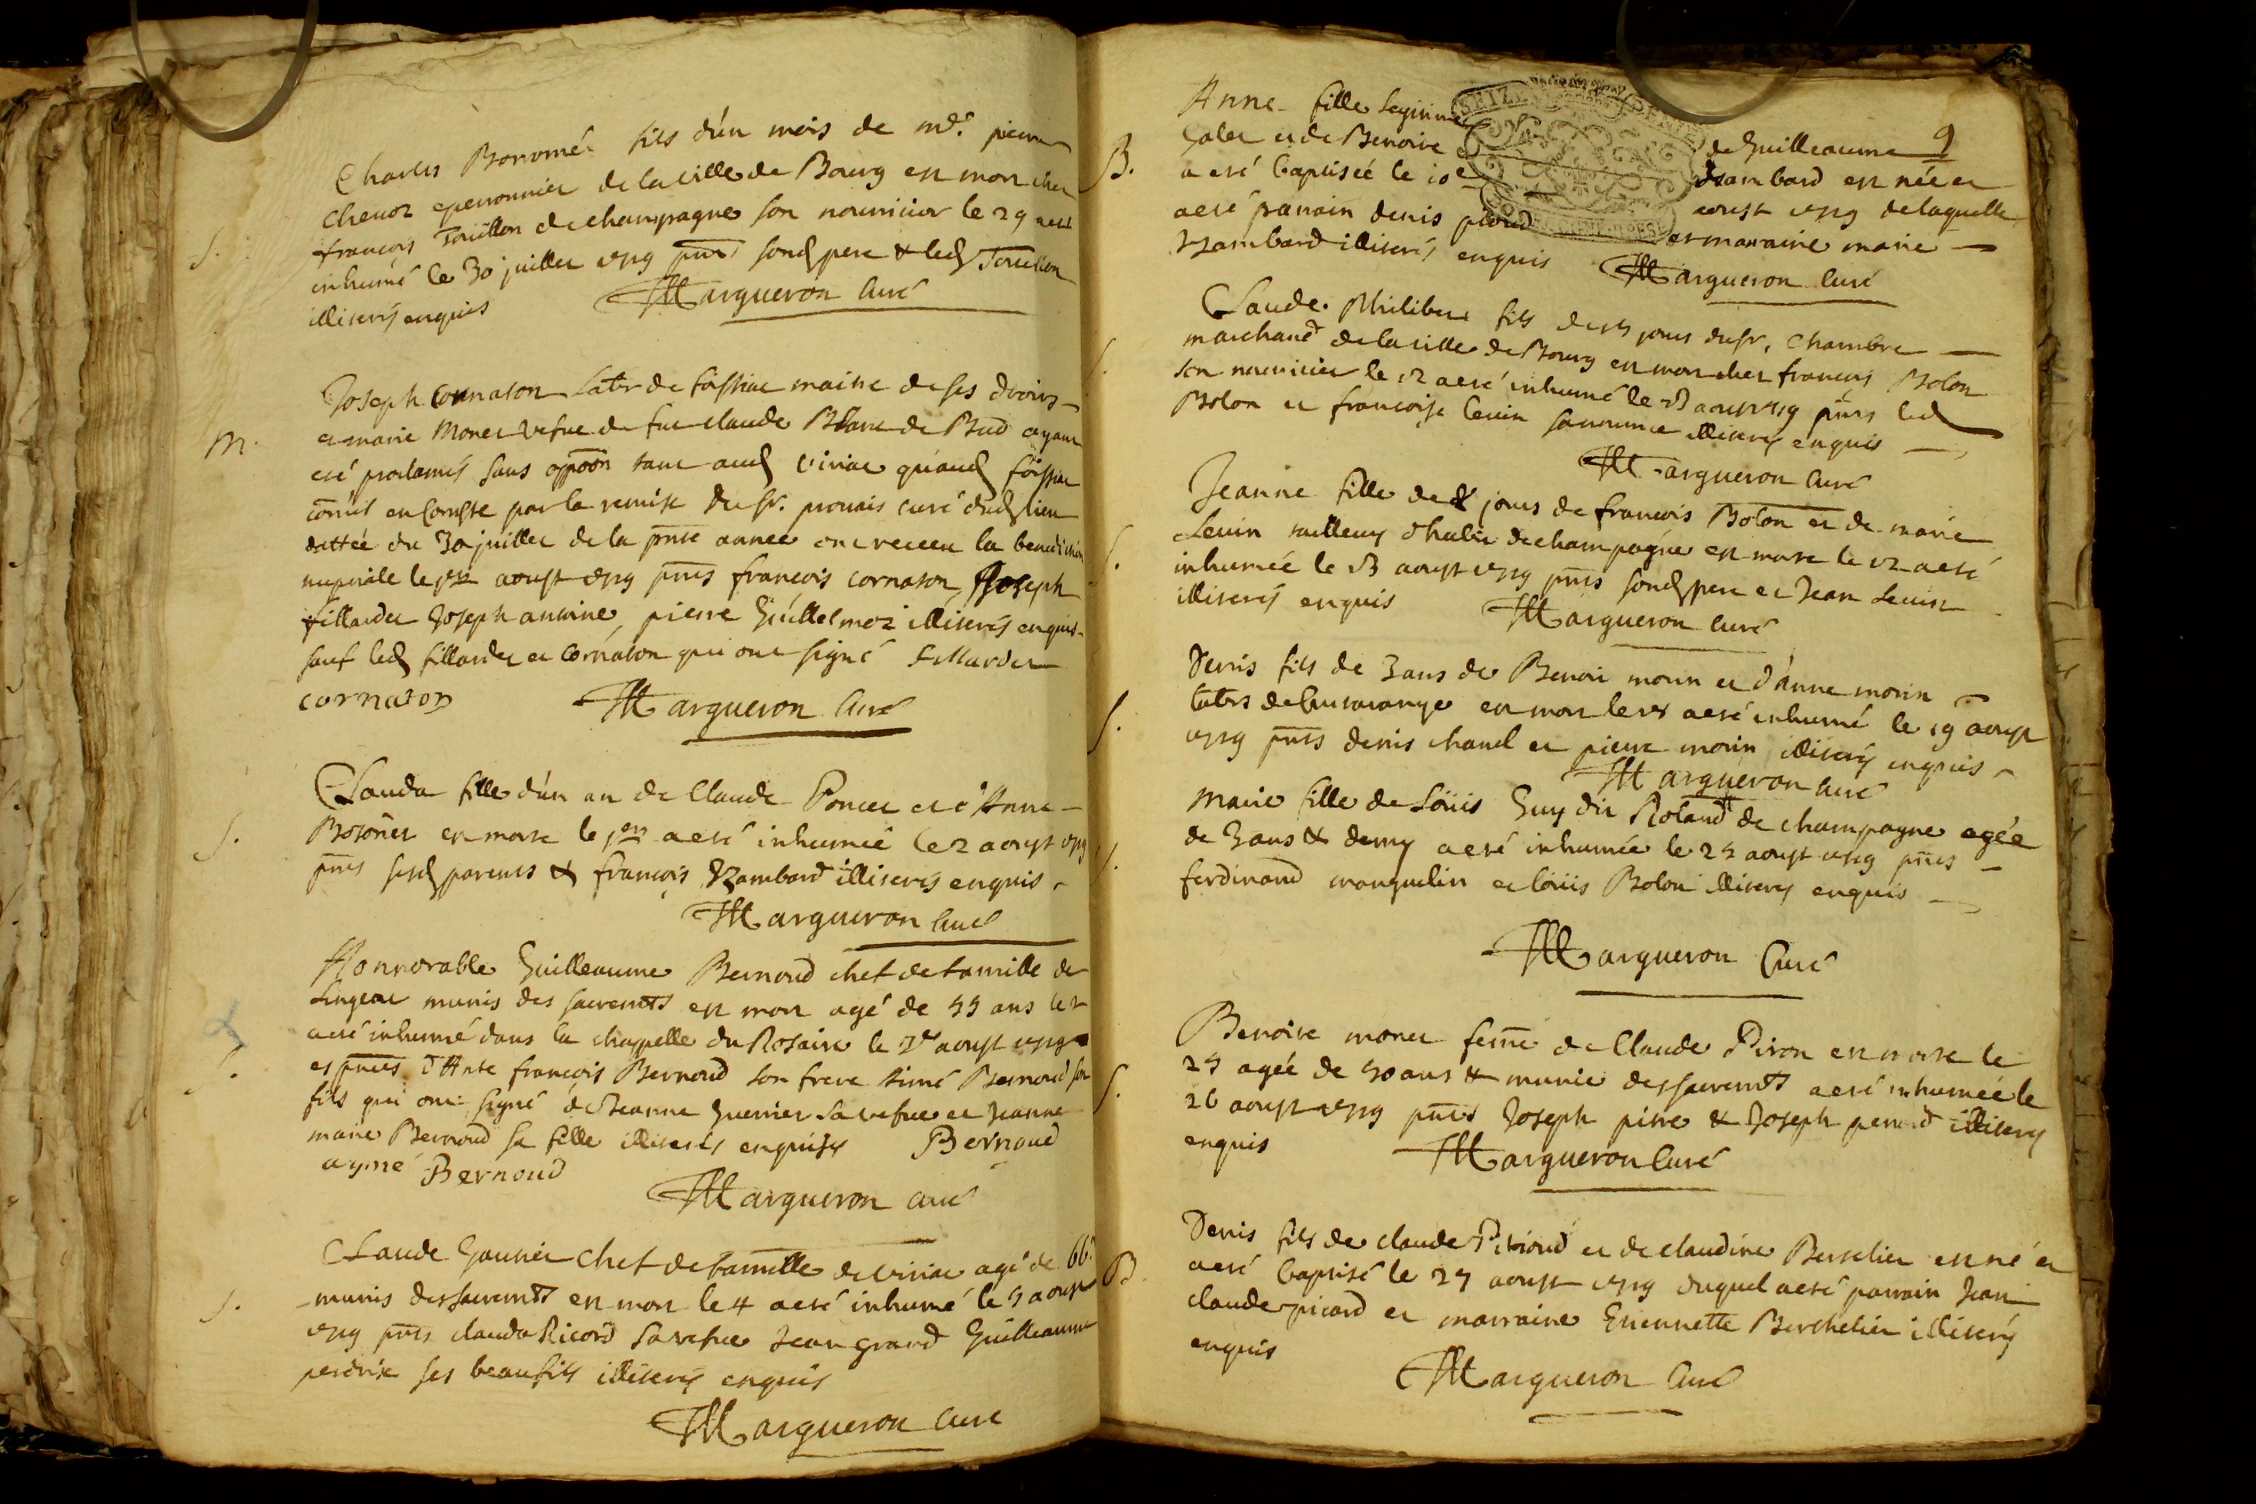 Charles Borromé fils d'un mois de md. pierre
chenoz eperonnier de la ville de Bourg est mort chez
françois Touillon de champagne son nourricier le 29 a esté
S.
inhumé le 30 juillet 1719 pnts sond pere & led Touillon
illiterés enquis Margueron Curé
Joseph Cornaton de foissiac maitre de ses droits
M.
et marie Monet vefue de feu claude de Bud ayant
eté proclamés sans oppoon tant aud viriac qu'aud foissiac
par la remise du Sr. curé dud lieu
dattée du 30 juillet de la pnte année ont receu la benediction
nuptiale le 1er aoust 1719 pnts françois cornaton, Joseph
fillardet Joseph antoine, pierre Guillelmoz illiterés enquis
sauf led fillardet et Cornaton qui ont signé fillardet
cornaton Margueron Curé
Clauda fille d'un an de Claude Poncet et d'Anne
S.
est morte le 1er a esté inhumée le 2 aoust 1719
pnts sesd parents & françois Rambard illiterés enquis
Margueron Curé
Honnorable Guilleaume Bernoud chef de famille de
Lingeat munis des sacremts est mort agé de 55 ans le
a esté inhumé dans la chappelle du Rosaire le aoust 1719
S.
françois Bernoud son frere Aimé Bernoud son
fils qui ont signé & Jeanne Guerrier sa vefue et Jeanne
marie Bernoud sa fille illiterés enquises Bernoud
aymé Bernoud
Margueron curé
Claude Gautier Chef de famille de viriac agé de 66
S.
munis des sacremts est mort le 4 a esté inhumé le 5 aoust
1719 pnts clauda Ricord sa vefue Jean grand Guilleaume
perdrix ses beaufils illiterés enquis
Margueron Curé
9
Anne fille de Guilleaume
B.
et de Benoite Rambard est née et
a esté baptisée le 10e aoust 1719 de laquelle
a esté parrain denis et marraine marie
Rambard illiterés enquis Margueron Curé
Claude Philibert fils de jours du Sr. Chambre
S.
marchand de la ville de Bourg est mort chez françois Bolon
son nourricier le 12 a esté inhumé le 13 aoust 1719 pnts led
Bolon et françoise levin sa nourrice illiterés enquis
Margueron Curé
Jeanne fille de 8 jours de françois Bolon et de marie
Levin tailleur d'habit de champagne est morte le 12 a esté
S.
inhumée le 13 aoust 1719 pnts sond pere et Jean Levin
illiterés enquis Margueron Curé
Denis fils de 3 ans de Benoit morin et d'Anne morin
S.
est mort le 18 a esté inhumé le 19 aoust
1719 pnts denis chanel et pierre morin illiterés enquis
Margueron Curé
Marie fille de Loüis Guy dit Roland de champagne agée
S.
de 3 ans & demy a esté inhumée le 25 aoust 1719 pnts
ferdinand tranquelin et loüis Bolon illiterés enquis
Margueron Curé
Benoite monet feme de Claude Piron est morte le
S.
25 agée de 50 ans & munie des sacremts a esté inhumée le
26 aoust 1719 pnts Joseph pitre & Joseph perrod illiterés
enquis Margueron Curé
Denis fils de claude et de claudine Berthelier est né et
B.
a esté baptisé le 27 aoust 1719 duquel a esté parrain Jean
claude picard et marraine Etiennette Berthelier illiterés
enquis
Margueron Curé